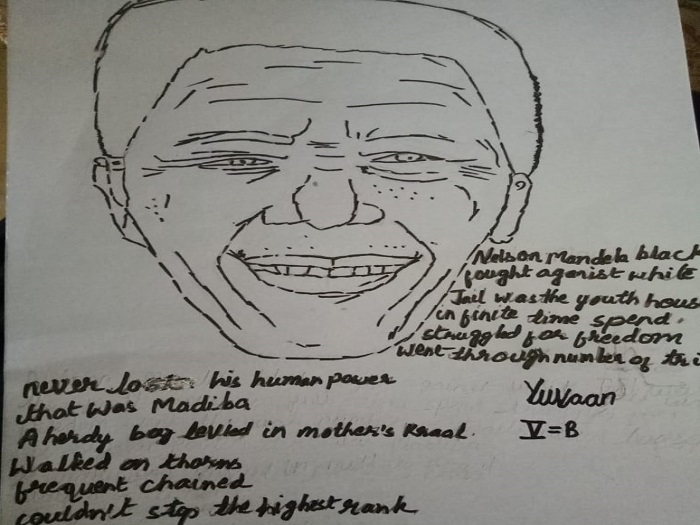 Nelson Mandela black
fought aganist white
Jail was the youth hous
in finite time spend.
struggled for freedom
went through number of tri
never lost his human power
that was Madiba
A herdy boy levied in mother's Kraal.
Walked on thorns
frequent chained
couldn't stop the highest rank
Yuvaan
V=B